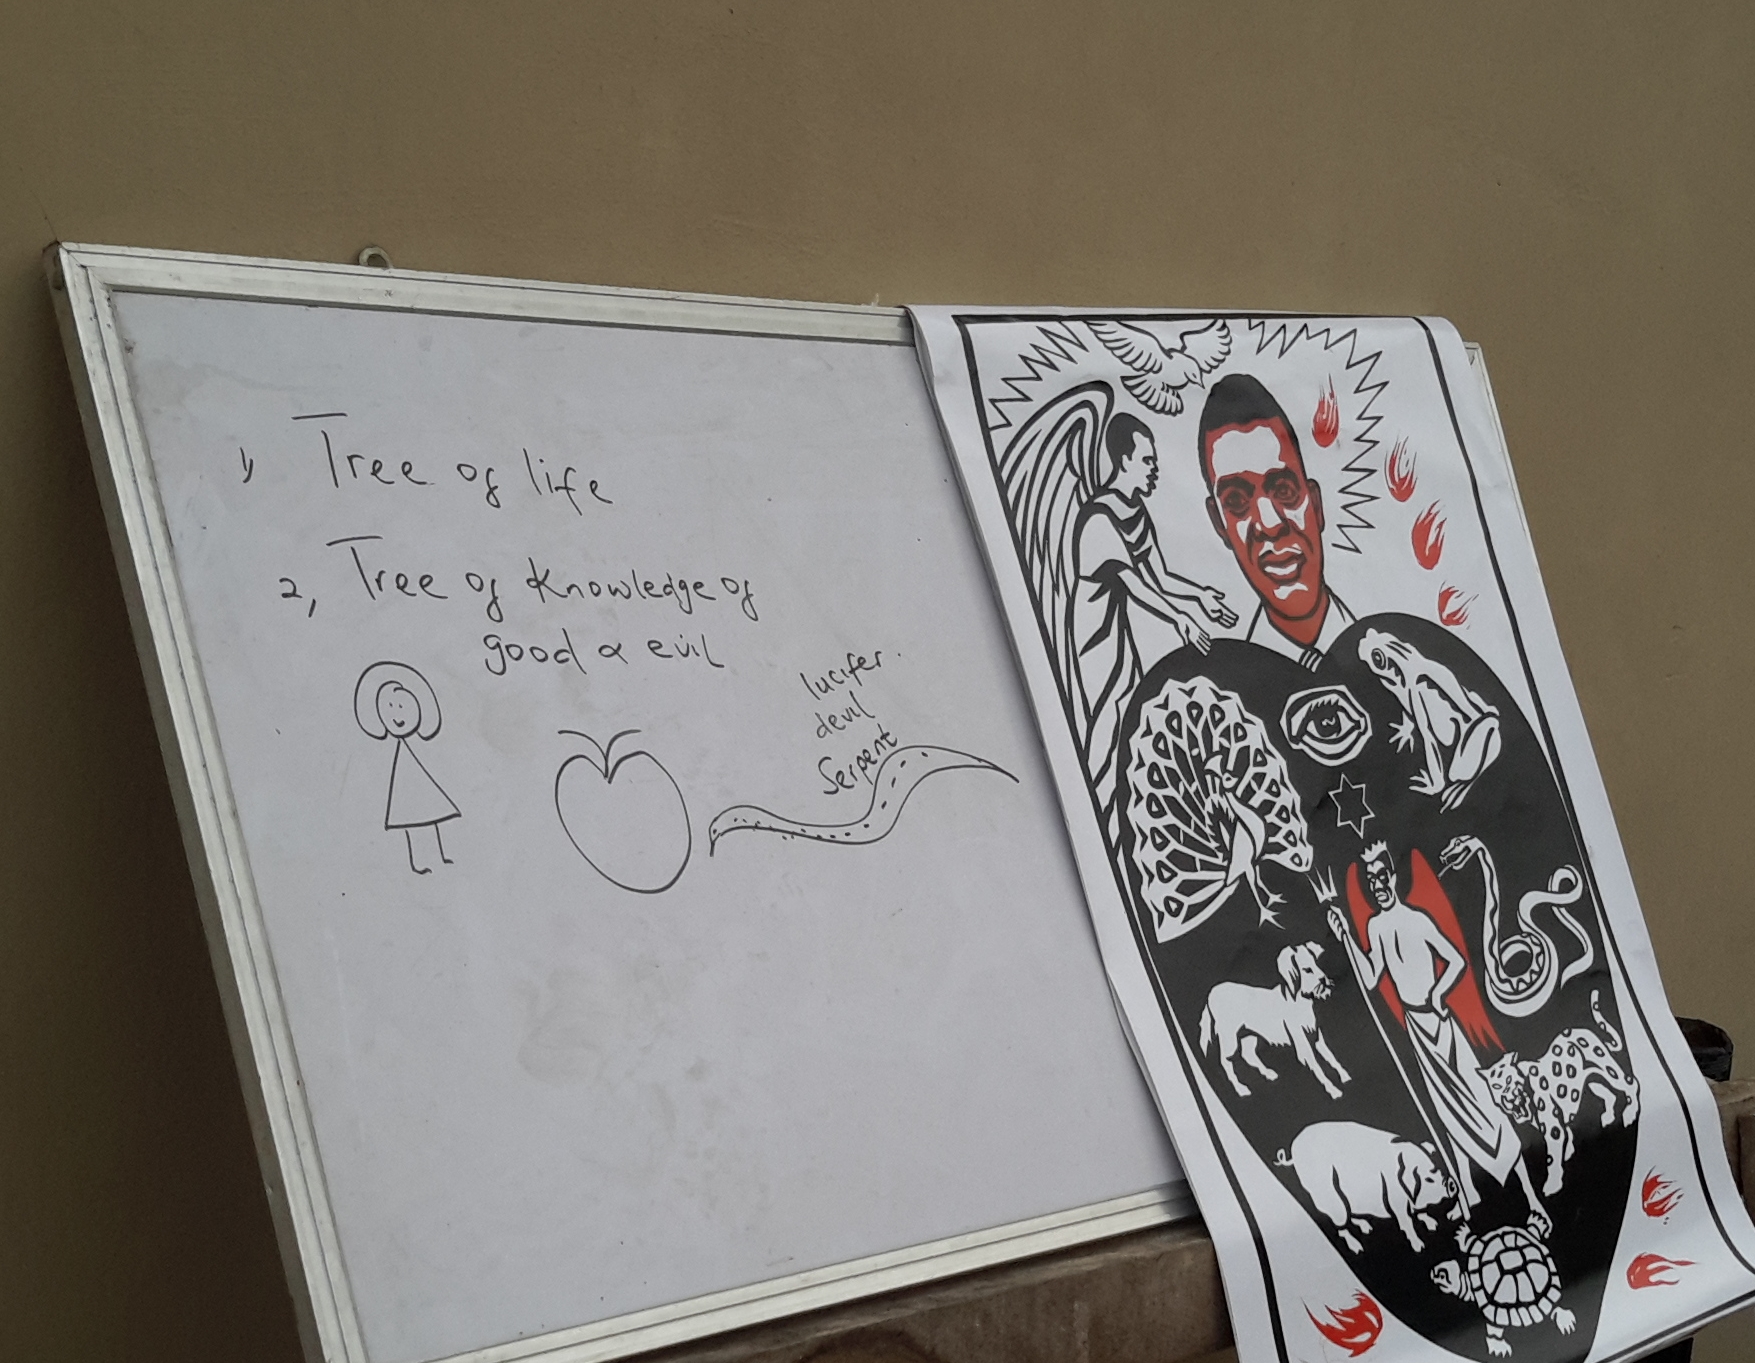 1) Tree of life
2, Tree of Knowledge of
good & evil
lucifer.
devil
Serpent